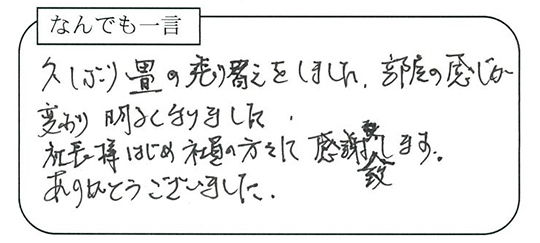 なんでも一言
久しぶり畳の売り替えをしました、部屋の感じが
変わり明るくなりました.
社長様はじめ社員の方々に感謝致します。
ありがとうございました.